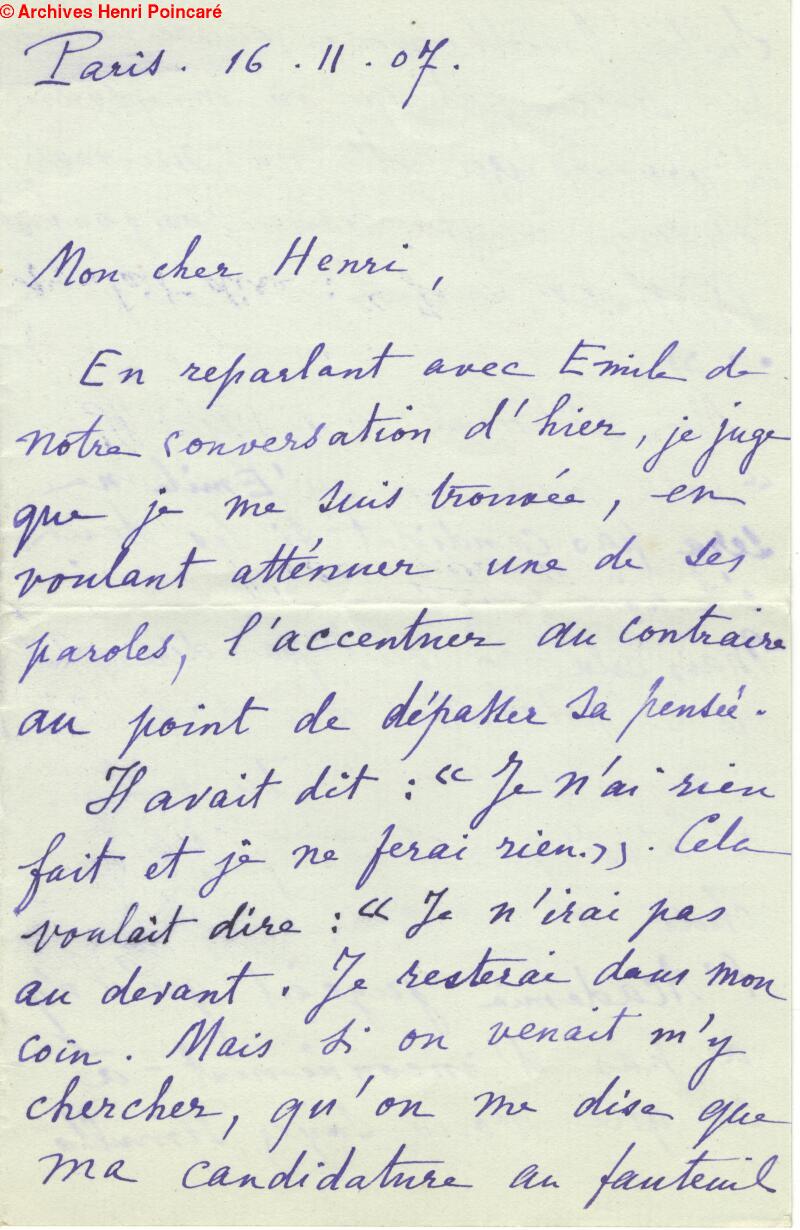 © Archives Henri Poincaré
Paris. 16.11.07.
Mon cher Henri,
En reparlant avec Emile de
notre conversation d'hier, je juge
que je me suis trouvée, en
voulant atténuer une de ses
paroles, l'accentuer au contraire
au point de dépasser sa pensée.
Il avait dit : « Je n'ai rien
fait et je ne ferai rien.» . Cela
voulait dire : « Je n'irai pas
au devant. Je resterai dans mon
coin. Mais si on venait m'y
chercher, qu'on me dise que
ma candidature au fauteuil